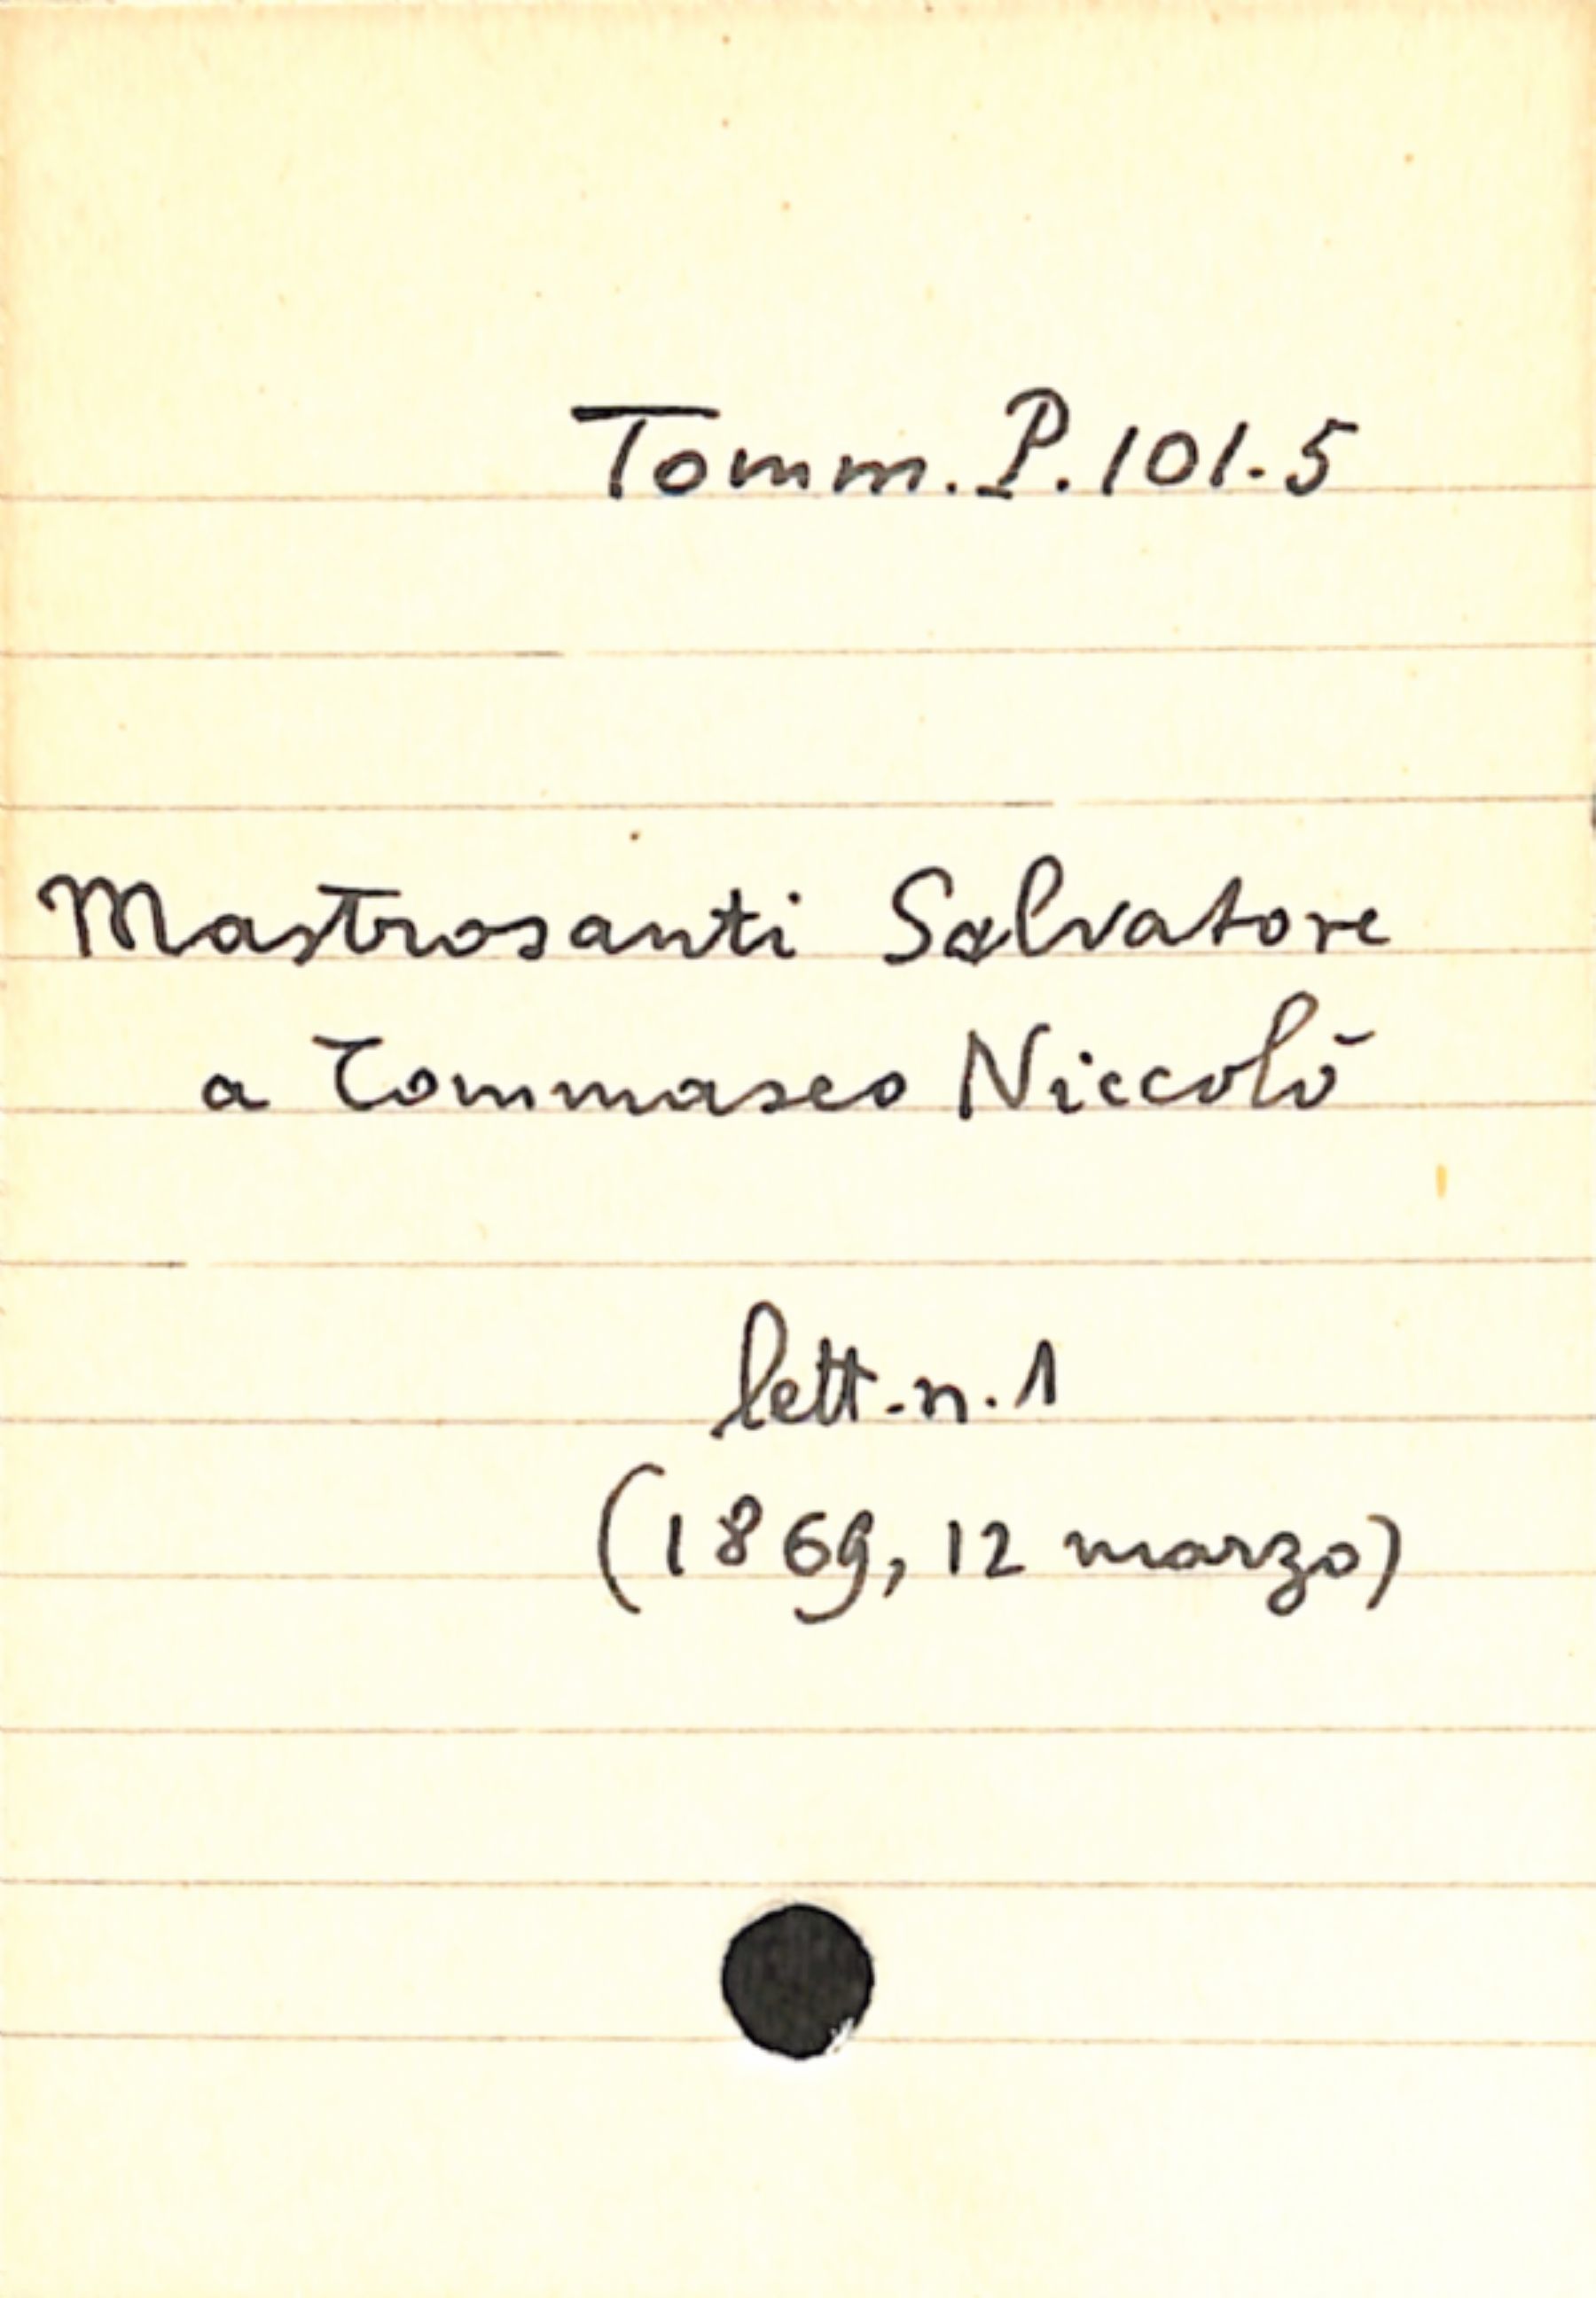 Tomm. P. 101.5
Mastrosanti Salvatore
a Tommaseo Niccolò
lett. n. 1
(1869, 12 marzo)